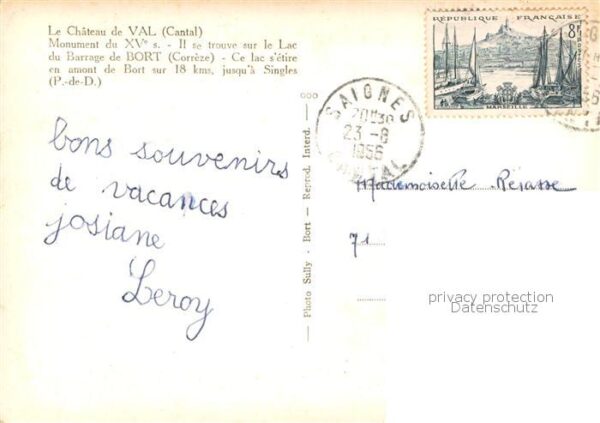 Le Château de VAL (Cantal)
Monument du XVe s. - Il se trouve sur le Lac
du Barrage de BORT (Corrèze) - Ce lac s'étire
en amont de Bort sur 18 kms, jusqu'à Singles
(P.-de-D.)
bons souvenirs
de vacances
josiane
Leroy
— Photo Sully - Bort — Reprod. Interd. —
RÉPUBLIQUE FRANÇAISE
8F
MARSEILLE
SAIGNES
20H30
23-8
1956
CANTAL
Mademoiselle
71
privacy protection
Datenschutz